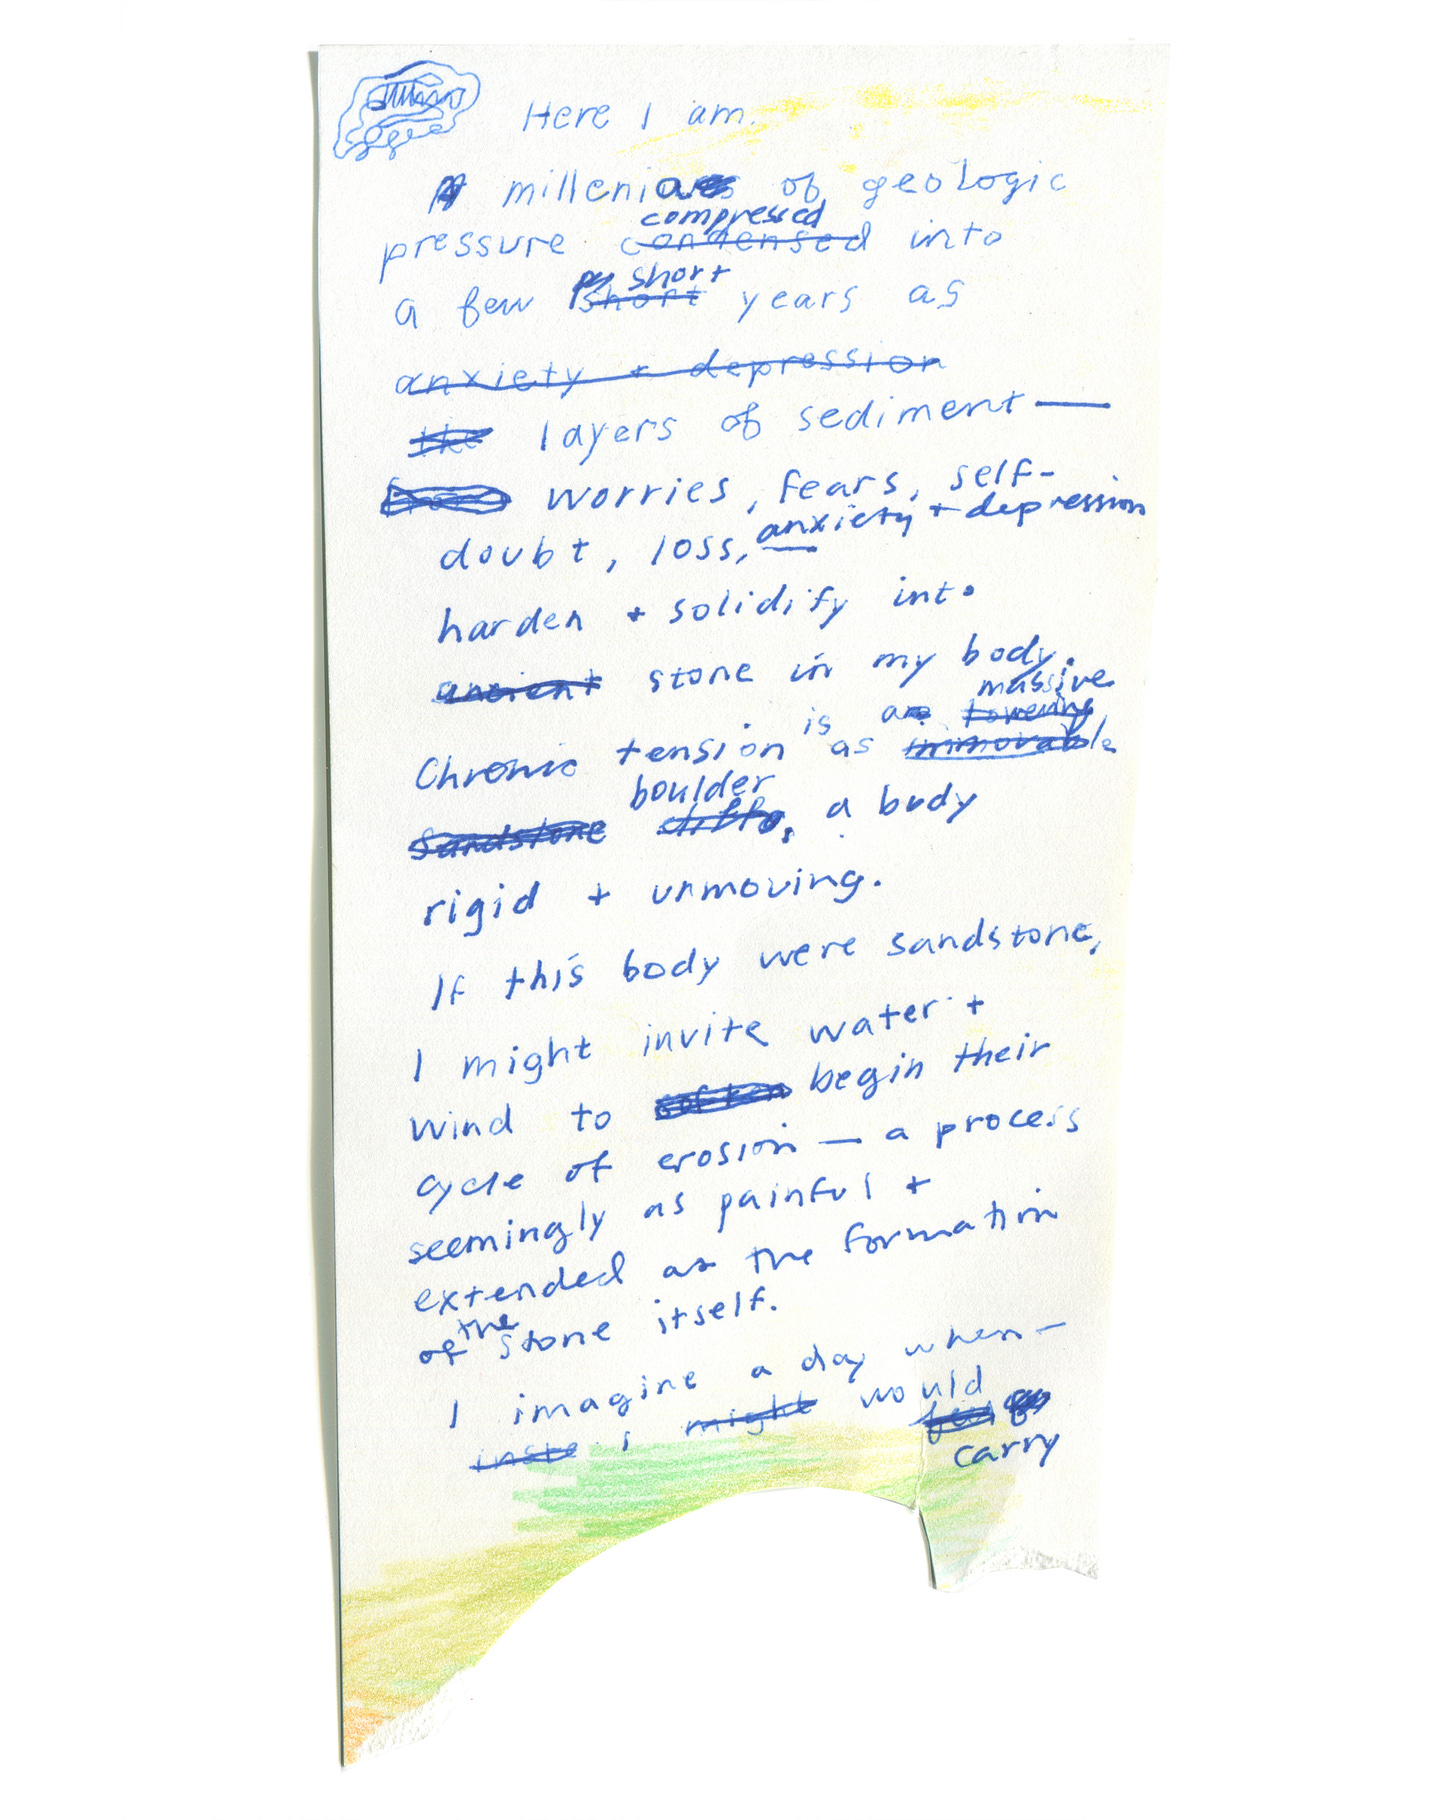 Here I am.
A millenia of geologic
compressed
pressure condensed into
short
a few short years as
anxiety + depression
the layers of sediment —
worries, fears, self-
anxiety + depression
doubt, loss, —
harden + solidify into
ancient stone in my body.
massive
is a towering
Chronic tension as immovable
boulder
sandstone cliffs, a body
rigid + unmoving.
If this body were sandstone,
I might invite water +
wind to soften begin their
cycle of erosion — a process
seemingly as painful +
extended as the formation
the
of stone itself.
I imagine a day when —
inste i might would
carry